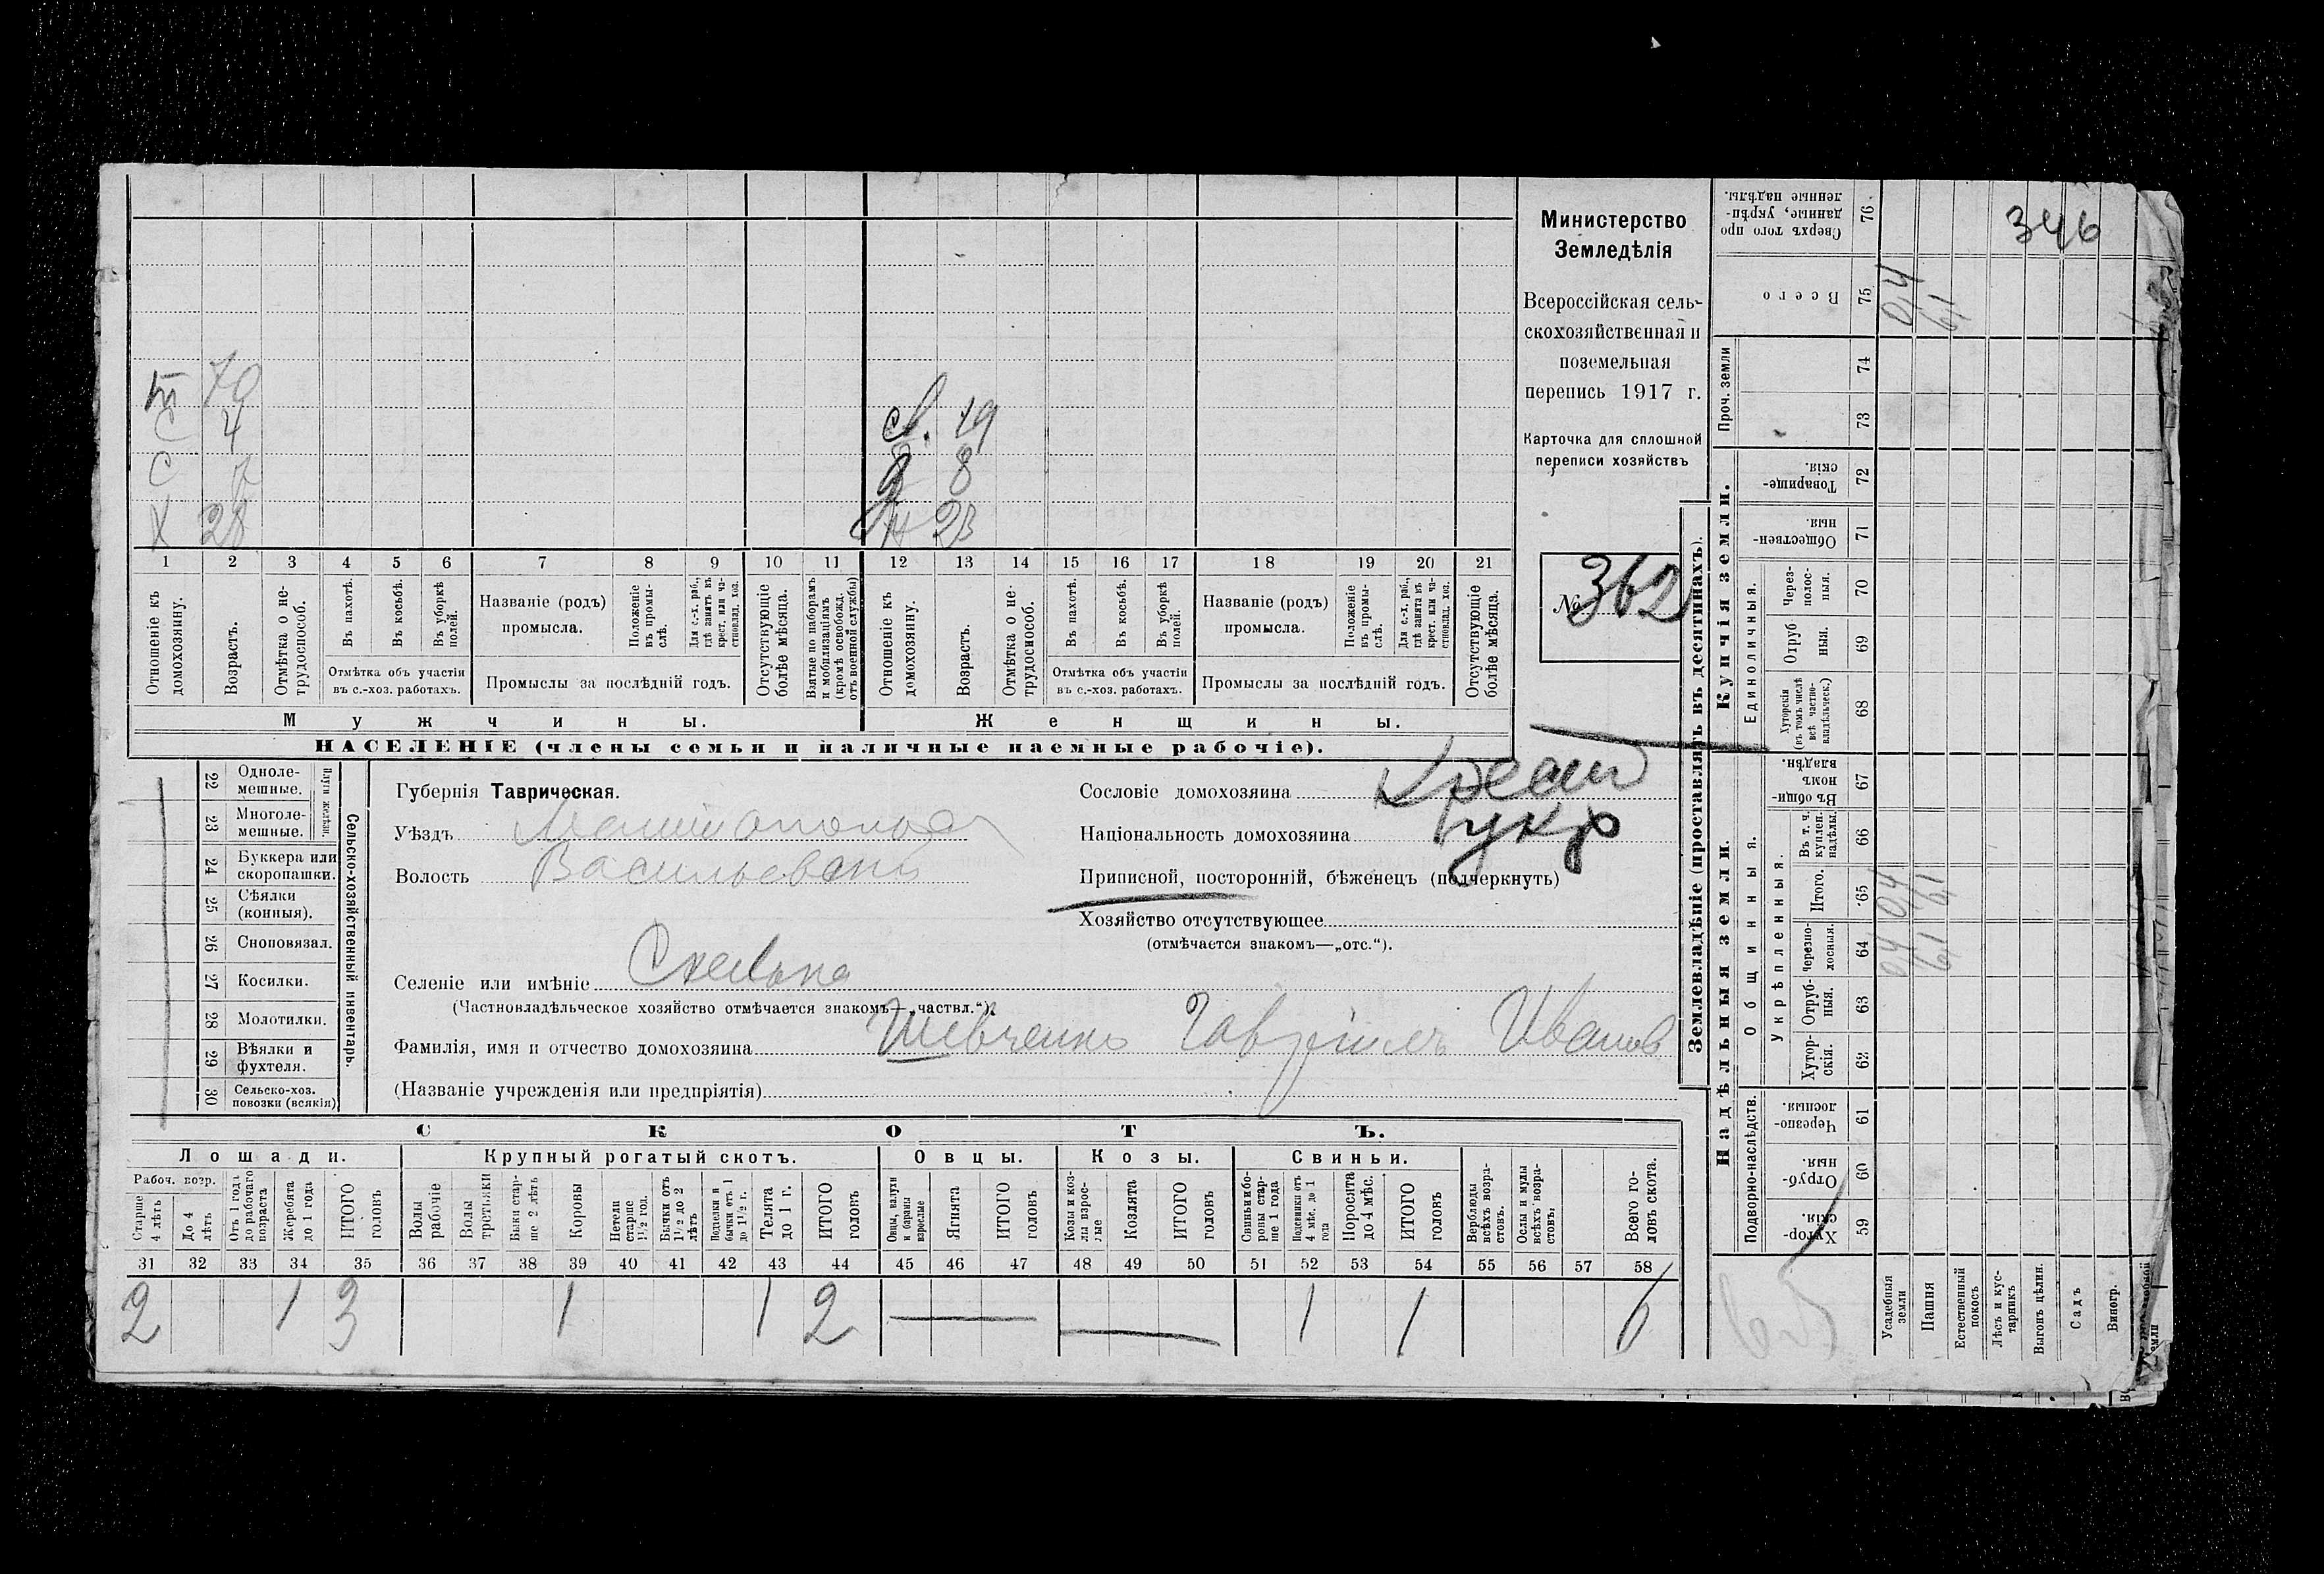 346
Министерство
Земледѣлія
Всероссійская сель-
скохозяйственная и
поземельная
перепись 1917 г.
Карточка для сплошной
переписи хозяйствъ
№ 362
70
С 4
С 7
Х 28
19
8
Ж 23
1 2 3 4 5 6 7 8 9 10 11 12 13 14 15 16 17 18 19 20 21
Отношеніе къ домохозяину.
Возрастъ.
Отмѣтка о не-
трудоспособ.
Въ пахотѣ.
Въ косьбѣ.
Въ уборкѣ полей.
Отмѣтка объ участіи
въ с.-хоз. работахъ.
Названіе (родъ)
промысла.
Положеніе въ промы-
слѣ.
Для с.-х. раб.,
гдѣ занятъ въ
крест. или ча-
стновлад. хоз.
Промыслы за послѣдній годъ.
Отсутствующіе
болѣе мѣсяца.
Взятые по наборамъ
и мобилизаціямъ
(кромѣ освобожд.
отъ военной службы)
Отношеніе къ
домохозяину.
Возрастъ.
Отмѣтка о не-
трудоспособ.
Въ пахотѣ.
Въ косьбѣ.
Въ уборкѣ
полей.
Отмѣтка объ участіи
въ с.-хоз. работахъ.
Названіе (родъ)
промысла.
Положеніе
въ промы-
слѣ.
Для с.-х. раб.,
гдѣ занята въ
крест. или ча-
стновлад. хоз.
Промыслы за послѣдній годъ.
Отсутствующіе
болѣе мѣсяца.
Мужчины.
Женщины.
НАСЕЛЕНІЕ (члены семьи и наличные наемные рабочіе).
22 Одноле-
мешные.
23 Многоле-
мешные.
Плуги желѣзн.
24 Буккера или
скоропашки.
25 Сѣялки
(конныя).
26 Сноповязал.
27 Косилки.
28 Молотилки.
29 Вѣялки и
фухтеля.
30 Сельско-хоз.
повозки (всякія)
Сельско-хозяйственный инвентарь.
Губернія Таврическая.
Уѣздъ Мелитопольск
Волость Васильевск
Селеніе или имѣніе Скелька
(Частновладѣльческое хозяйство отмѣчается знакомъ—„частвл.“).
Фамилія, имя и отчество домохозяина Шевченко Гавріилъ Иванов
(Названіе учрежденія или предпріятія)
Сословіе домохозяина крест
Національность домохозяина укр
Приписной, посторонній, бѣженецъ (подчеркнуть)
Хозяйство отсутствующее
(отмѣчается знакомъ—„отс.“).
СКОТЪ.
Лошади.
Крупный рогатый скотъ.
Овцы.
Козы.
Свиньи.
Рабоч. возр.
Старше
4 лѣтъ
До 4
лѣтъ
Отъ 1 года
до рабочаго
возраста
Жеребята
до 1 года
ИТОГО
головъ
Волы
рабочіе
Волы
третьяки
Быки стар-
ше 2 лѣтъ
Коровы
Нетели
старше
1½ год.
Бычки отъ
1½ до 2
лѣтъ
Подтелки и
бычки отъ 1
до 1½ г.
Телята
до 1 г.
ИТОГО
головъ
Овцы, валухи
и бараны
взрослые
Ягнята
ИТОГО
головъ
Козы и коз-
лы взрос-
лые
Козлята
ИТОГО
головъ
Свиньи и бо-
ровы стар-
ше 1 года
Подсвинки отъ
4 мѣс. до 1
года
Поросята
до 4 мѣс.
ИТОГО
головъ
Верблюды
всѣхъ возра-
стовъ.
Ослы и мулы
всѣхъ возра-
стовъ.
Всего го-
ловъ скота.
31 32 33 34 35 36 37 38 39 40 41 42 43 44 45 46 47 48 49 50 51 52 53 54 55 56 57 58
2 1 3 1 1 2 — — 1 1 6
Землевладѣніе (проставлять въ десятинахъ).
Надѣльныя земли.
Купчія земли.
Проч. земли
Подворно-наслѣдств.
Общинныя.
Укрѣпленныя.
Единоличныя.
Хутор-
скія. 59
Отруб-
ныя. 60
Черезпо-
лосныя. 61
Хутор-
скія. 62
Отруб-
ныя. 63
Черезпо-
лосныя. 64
Итого. 65
Въ т. ч.
куплен.
надѣлы. 66
Въ общи-
номъ
владѣн. 67
Хуторскія
(въ томъ числѣ
всѣ частно-
владѣльческ.) 68
Отруб
ныя. 69
Через-
полос-
ныя. 70
Обществен-
ныя. 71
Товарище-
скія. 72
73
74
Всего 75
Сверхъ того про
данные, укрѣп-
ленные надѣлы. 76
Усадебныя
земли 04 04 04
Пашня 61 61 61
Естественный
покосъ
Лѣсъ и кус-
тарникъ
Выгонъ цѣлин.
Садъ
Виногр.